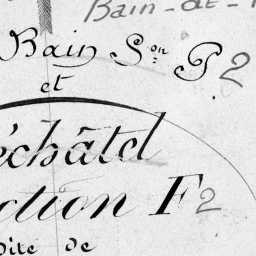 Bain-de-
Bain Son P2
et
échâtel
ction F2
dite de